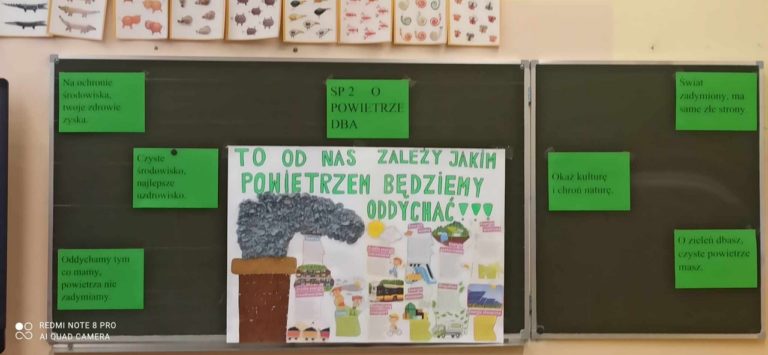 Na ochronie
środowiska,
twoje zdrowie
zyska.
Czyste
środowisko,
najlepsze
uzdrowisko.
Oddychamy tym
co mamy,
powietrza nie
zadymiamy
SP 2 O
POWIETRZE
DBA
TO OD NAS ZALEŻY JAKIM
POWIETRZEM BĘDZIEMY
ODDYCHAĆ!!!
Świat
zadymiony, ma
same złe strony.
Okaż kulturę
i chroń naturę.
O zieleń dbasz,
czyste powietrze
masz.
REDMI NOTE 8 PRO
AI QUAD CAMERA